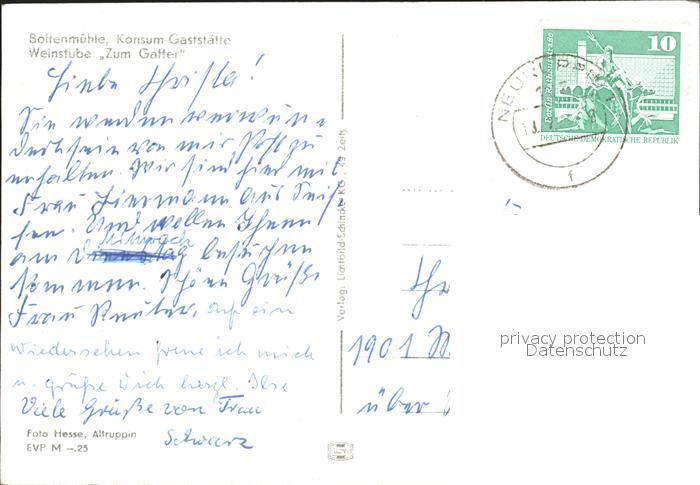 Boltenmühle, Konsum-Gaststätte
Weinstube „Zum Gatter"
Liebe Christa!
Sie werden verwun-
dert sein von mir Post zu
erhalten. Wir sind hier mit
Frau Liermann aus Seif-
fen. Und wollen Ihnen
am Mittwoch besuchen
kommen. Schöne Grüße
Frau Reuter, auf ein
Wiedersehen freue ich mich
u. grüße Dich herzl. Ilse
Viele Grüße von Frau
Schwarz
Foto Hesse, Altruppin
EVP M –.25
Verlag: Lichtbild-Schincke KG, 49 Zeitz
10
Berlin-Rathausstraße
DEUTSCHE DEMOKRATISCHE REPUBLIK
NEURUPPIN
f
1901
über
privacy protection
Datenschutz